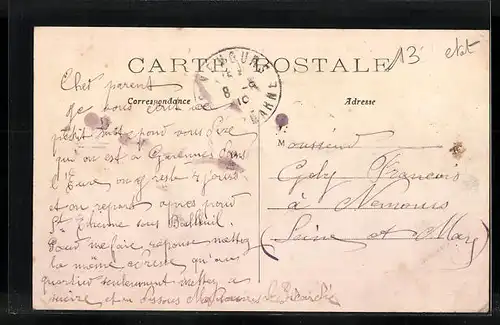 13 état
CARTE POSTALE
Correspondance
Adresse
8 - 9
10
MARNE
Cher parent
Je vous écrit ce
petit mot pour vous dire
qui on est à Garennes dans
l'Eure on y reste 4 jours
et on repart après pour
St Etienne sous Bailleul.
Pour me faire réponse mettez
la même adresse qu'au
quartier seulement mettez a
suivre et en dessous
Monsieur
Gely Francois
à Nemours
(Seine et Mar)